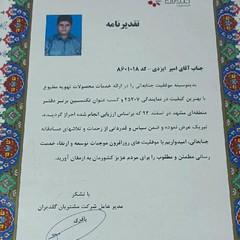 تقدیرنامه
جناب آقای امیر ایزدی - کد ۸۶۰۱۰۱۸
بدینوسیله موفقیت جنابعالی را در ارائه خدمات محصولات تهویه مطبوع
با بهترین کیفیت در نمایندگی ۲۵۲۰۷ و کسب عنوان تکنسین برتر دفتر
منطقه‌ای مشهد در اسفند ۹۲ که براساس ارزیابی انجام شده احراز گردید،
تبریک عرض نموده و ضمن سپاس و قدردانی از زحمات و تلاشهای صادقانه
جنابعالی، امیدواریم با موفقیت های روزافزون موجبات توسعه و ارتقاء خدمت
رسانی مطمئن و مطلوب را برای مردم عزیز کشورمان به ارمغان آورید.
با تشکر
مدیر عامل شرکت مشتریان گلدیران
باقری